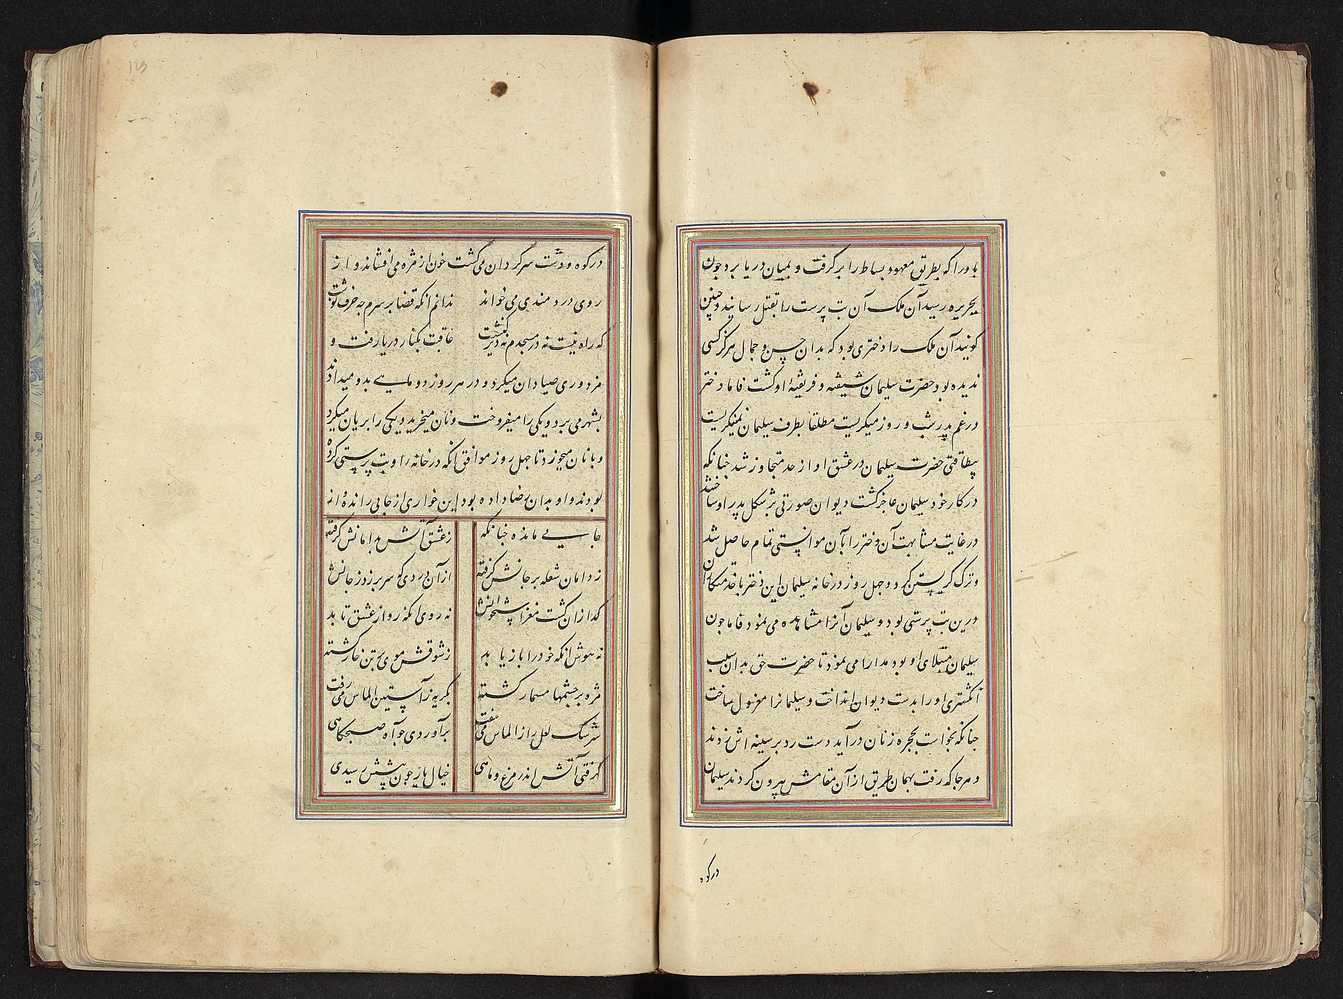 باد را که بطریق معهود بساط را بر گرفت و بمیان دریا برد چون
بجزیره رسید آن ملک آن بت پرست را بقتل رسانید و چنین
گویند آن ملک را دختری بود که بدان حسن و جمال هرگز کسی
ندیده بود حضرت سلیمان شیفته و فریفتهٔ او گشت فاما دختر
در غم پدر شب و روز میگریست مطلقا بطرف سلیمان نمینگریست
بیطاقتی حضرت سلیمان در عشق او از حد متجاوز شد چنانکه
در کار خود سلیمان عاجز گشت دیوان صورتی بر شکل پدر او ساختند
در غایت مشابهت آن دختر را بآن موانستی تمام حاصل شد
و ترک گریستن کرد و چهل روز در خانه سلیمان این دختر با خدمتکاران
درین بت پرستی بود و سلیمان آنرا مشاهده می نمود فاما چون
سلیمان مبتلای او بود مدارا می نمود تا حضرت حق بدان سبب
انگشتری او را بدست دیوان انداخت و سلیمانرا معزول ساخت
چنانکه بخواست بحجره زنان در آید دست رد بر سینه اش زدند
و هر جا که رفت بهمان طریق از آن مقامش بیرون کردند سلیمان
در کوه
در کوه و دشت سرگردان می گشت خون از مژه می افشاند و از
روی دردمندی می خواند ندانم آنکه قضا بر سرم چه حرف نوشت
که راه نیست نه در مسجدم نه در کنشت عاقبت بکنار دریا رفت و
مزدوری صیادان میکرد و در هر روز دو ماهیی بدو میدادند
بشهر می برد و یکی را میفروخت و نان میخرید و یکی را بریان میکرد
و با نان میخورد تا چهل روز موافق آنکه در خانه او بت پرستی کرده
بودند و او بدان رضا داده بود این خواری از جایی رانده از
جایی مانده چنانکه ز عشق آتش بدامانش گرفته
ز دامان شعله بر جانش گرفته از آن دردی که سر بر زد ز جانش
گدازان گشت مغز استخوانش نه روی آنکه رو از عشق تابد
نه هوش آنکه خود را باز یابد ز شوقش موی بر تن خار گشته
مژه بر چشمها مسمار گشته بگریه ز آستین الماس می رفت
سرشک لعل را ز الماس می سفت بر آوردی چو آه صبحگاهی
گرفتی آتش اندر مرغ و ماهی خیال یار چون پیشش رسیدی